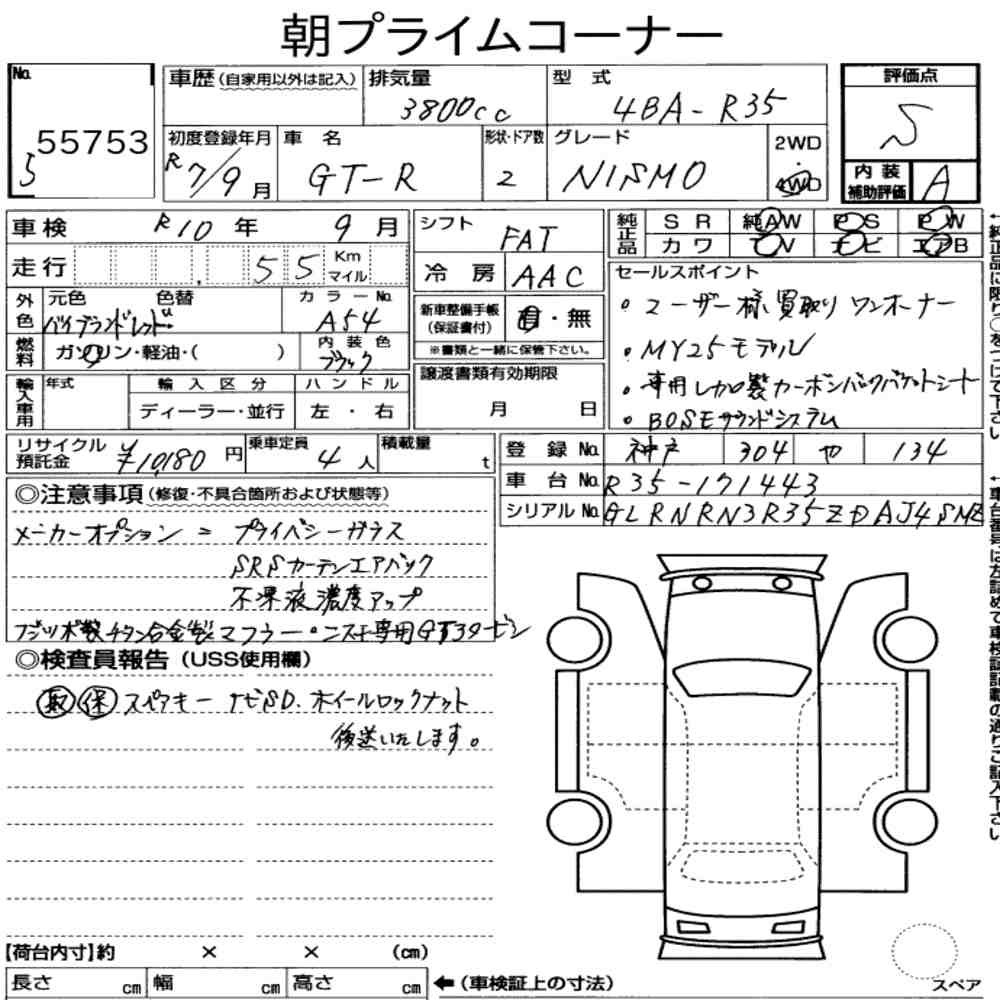 朝プライムコーナー
No. 55753
5
車歴(自家用以外は記入)
排気量 3800cc
型式 4BA-R35
評価点 S
初度登録年月 R7/9月
車名 GT-R
形状・ドア数 2
グレード NISMO
2WD
4WD
内装補助評価 A
車検 R10年 9月
走行 55 Km マイル
シフト FAT
冷房 AAC
純正品 SR 純AW PS PW
カワ TV ナビ エアB
外色 元色 色替
バイブランドレッド
カラーNo. A54
燃料 ガソリン・軽油・( )
内装色 ブラック
新車整備手帳(保証書付) 有・無
※書類と一緒に保管下さい。
セールスポイント
・ユーザー様買取り ワンオーナー
・MY25モデル
・専用レカロ製カーボンバックバケットシート
・BOSEサウンドシステム
輸入車用 年式 輸入区分 ハンドル
ディーラー・並行 左・右
譲渡書類有効期限
月 日
リサイクル預託金 ¥10,180円
乗車定員 4人
積載量 t
登録No. 神戸 304 や 134
車台No. R35-171443
シリアルNo. GLRNRN3R35ZDAJ4SMZ
◎注意事項(修復・不具合箇所および状態等)
メーカーオプション = プライバシーガラス
SRSカーテンエアバック
不凍液濃度アップ
フジツボ製チタン合金製マフラー・ニスモ専用GT3タービン
◎検査員報告(USS使用欄)
取 保 スペアキー ナビSD. ホイールロックナット
後送いたします。
【荷台内寸】約 × × (cm)
長さ cm 幅 cm 高さ cm
←(車検証上の寸法)
スペア
↑純正品に限り○をつけて下さい
↑車台番号は左詰めで車検証記載の通りご記入下さい